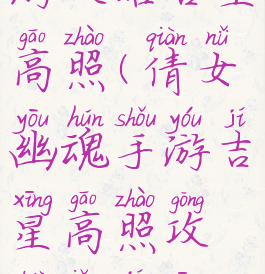 gāo zhào qiàn nǚ
高照(倩女
yōu hún shǒu yóu jí
幽魂手游吉
xīng gāo zhào gōng
星高照攻